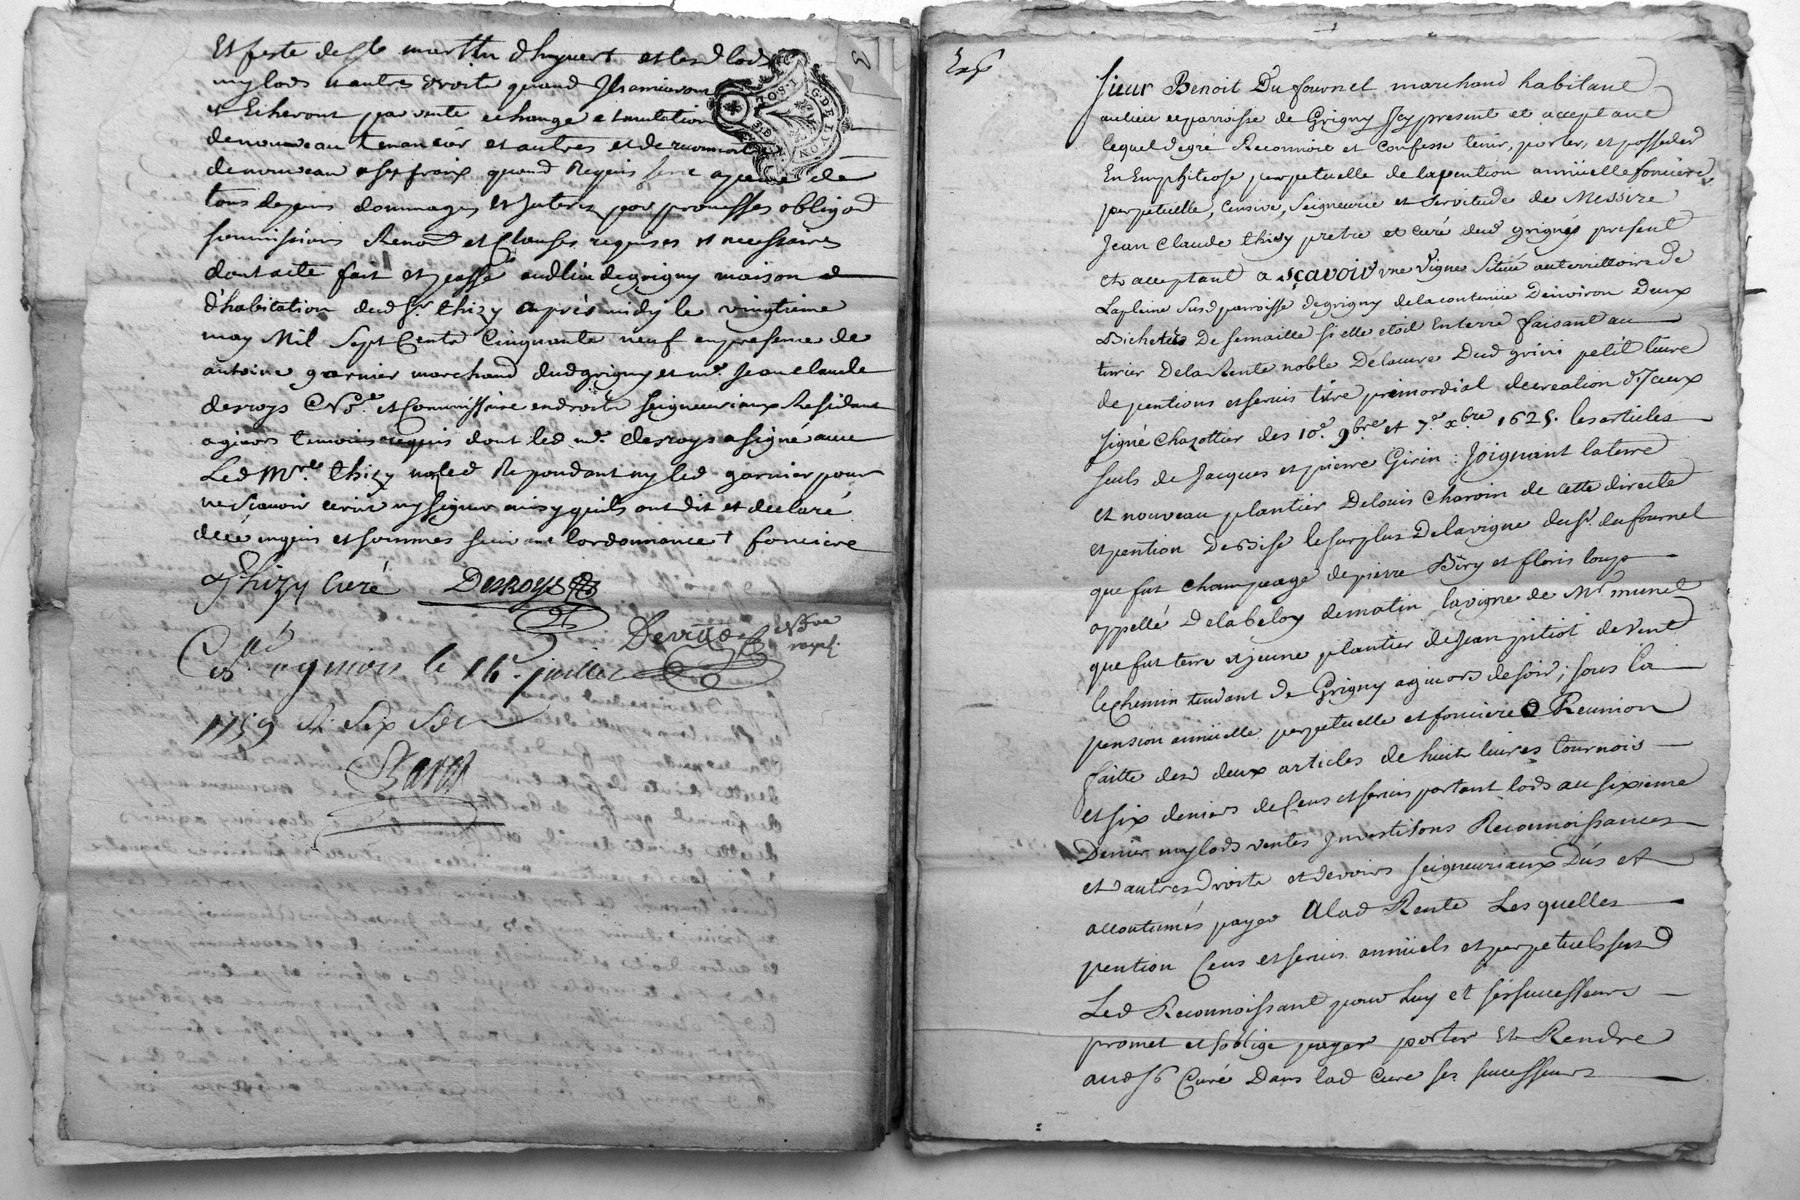 Et feste de St martin d'hyvert et lesd lods
mylods et autres droits quand Ils arriveront
et Echeront par vente echange et mutation
de nouveau tenancier et autres et de reconnoitre
de nouveau a ses fraix quand Requis sera a peine de
tous depens dommages et Interets par promesses obligaon
soumissions Renon et Clauses requises et necessaires
dont acte fait et passé audlieu de grigny maison
d'habitation dud Sr thizy apres midy le vingtieme
may Mil Sept Cents Cinquante neuf en presence de
antoine garnier marchand dud grigny et me Jean claude
desroys Nore et Commissaire en droits seigneuriaux Residant
a givors temoins requis dont led me desroys a signé avec
Led Mre thizy non led Repondant ny led garnier pour
ne scavoir ecrire ny signer ainsy quils ont dit et declaré
de ce enquis et sommés suivant lordonnance + fonciere
Thizy Curé Desroys
Devilde Nore royal
Collé a givors le 16e juillet
1759 R. Six Sols
Exp
Sieur Benoit Du fournel marchand habitant
au lieu et parroisse de Grigny Icy present et acceptant
lequel de gré Reconnoit et Confesse tenir, porter, et posseder
En Emphiteose perpetuelle de la pention annüelle fonciere,
perpetuelle, Censive, Seigneurie et Servitude de Messire
Jean Claude thizy pretre et curé dud grigny present
et acceptant a sçavoir une Vigne Scituée au territtoire de
La plaine susd parroisse de grigny de la contenüe D'environ Deux
Bicherés De semaille si elle etoit En terre faisant au
terrier De la Rente noble De la cure Dud grini petit livre
de pentions et servis titre primordial de creation d'Iceux
signé Chazottier des 10e 9bre et 7e xbre 1625. les articles
seuls de Jacques et pierre Girin : Joignant la terre
et nouveau plantier De Louis Charoin de cette directe
et pention De Bise le surplus De la vigne du Sr. du fournel
que fut champeage de pierre Biry et floris loup
appellé De la beloy de matin, la vigne de Mr munet
que fut terre et jeune plantier de Jean pitiot de vent
le Chemin tendant de Grigny a givors de soir, sous la
pension annüelle perpetuelle et fonciere Reunion
faitte desd deux articles de huit livres tournois
et six deniers de Cens et servis portant lods au sixieme
Denier mylods ventes Investisons Reconnoissances
et autres Droits et devoirs seigneuriaux Dus et
accoutumés payer A lad Rente Lesquelles
pention Cens et servis annüels et perpetuels susd
Led Reconnoissant pour Luy et ses successeurs
promet et s'oblige payer porter et Rendre
aud Sr Curé Dans lad Cure ses successeurs